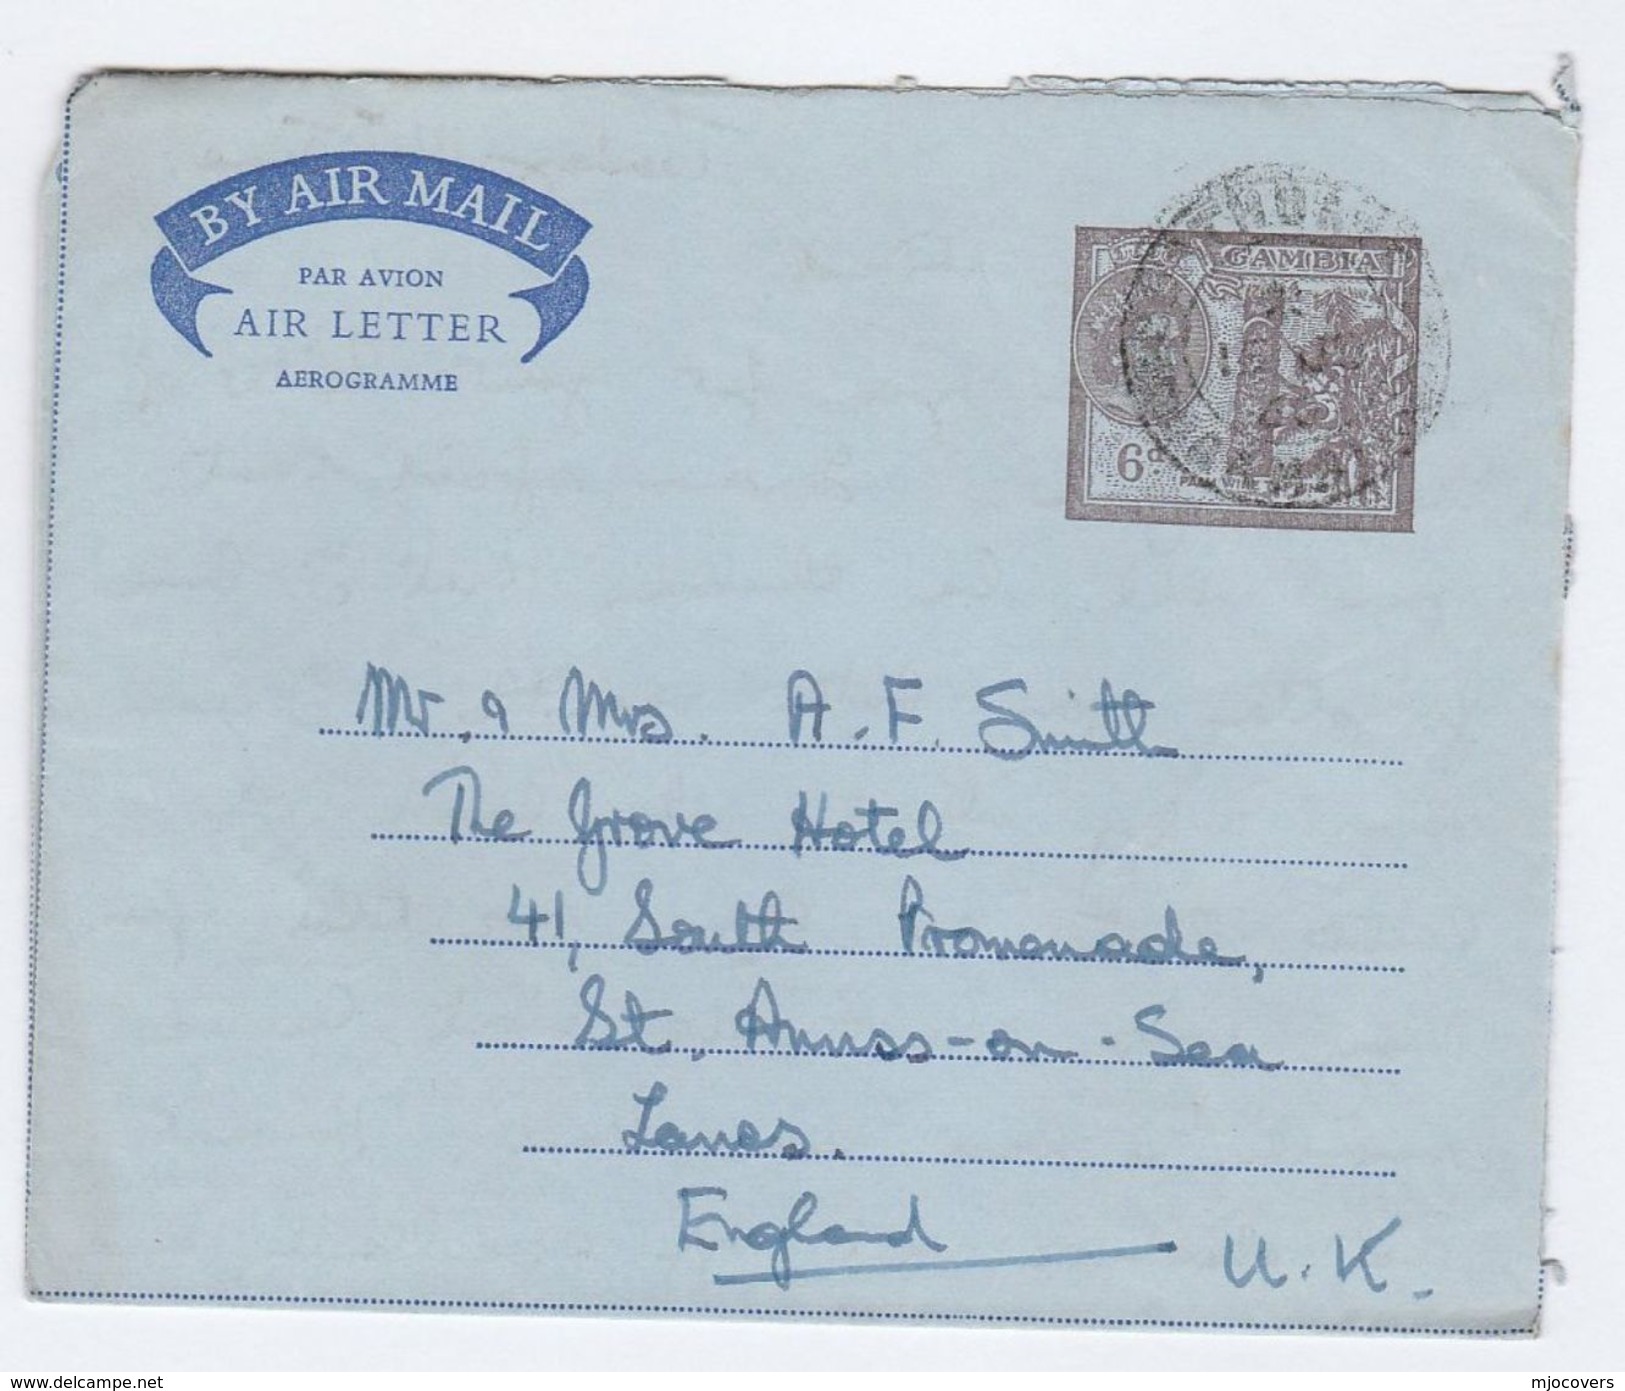 BY AIR MAIL
PAR AVION
AIR LETTER
AEROGRAMME
GAMBIA
6d
PALM WINE TAPPING
Mr. & Mrs. A. F. Smith
The Grove Hotel
41, South Promenade,
St. Annss-on-Sea
Lancs.
England U.K.
www.delcampe.net
mjocovers